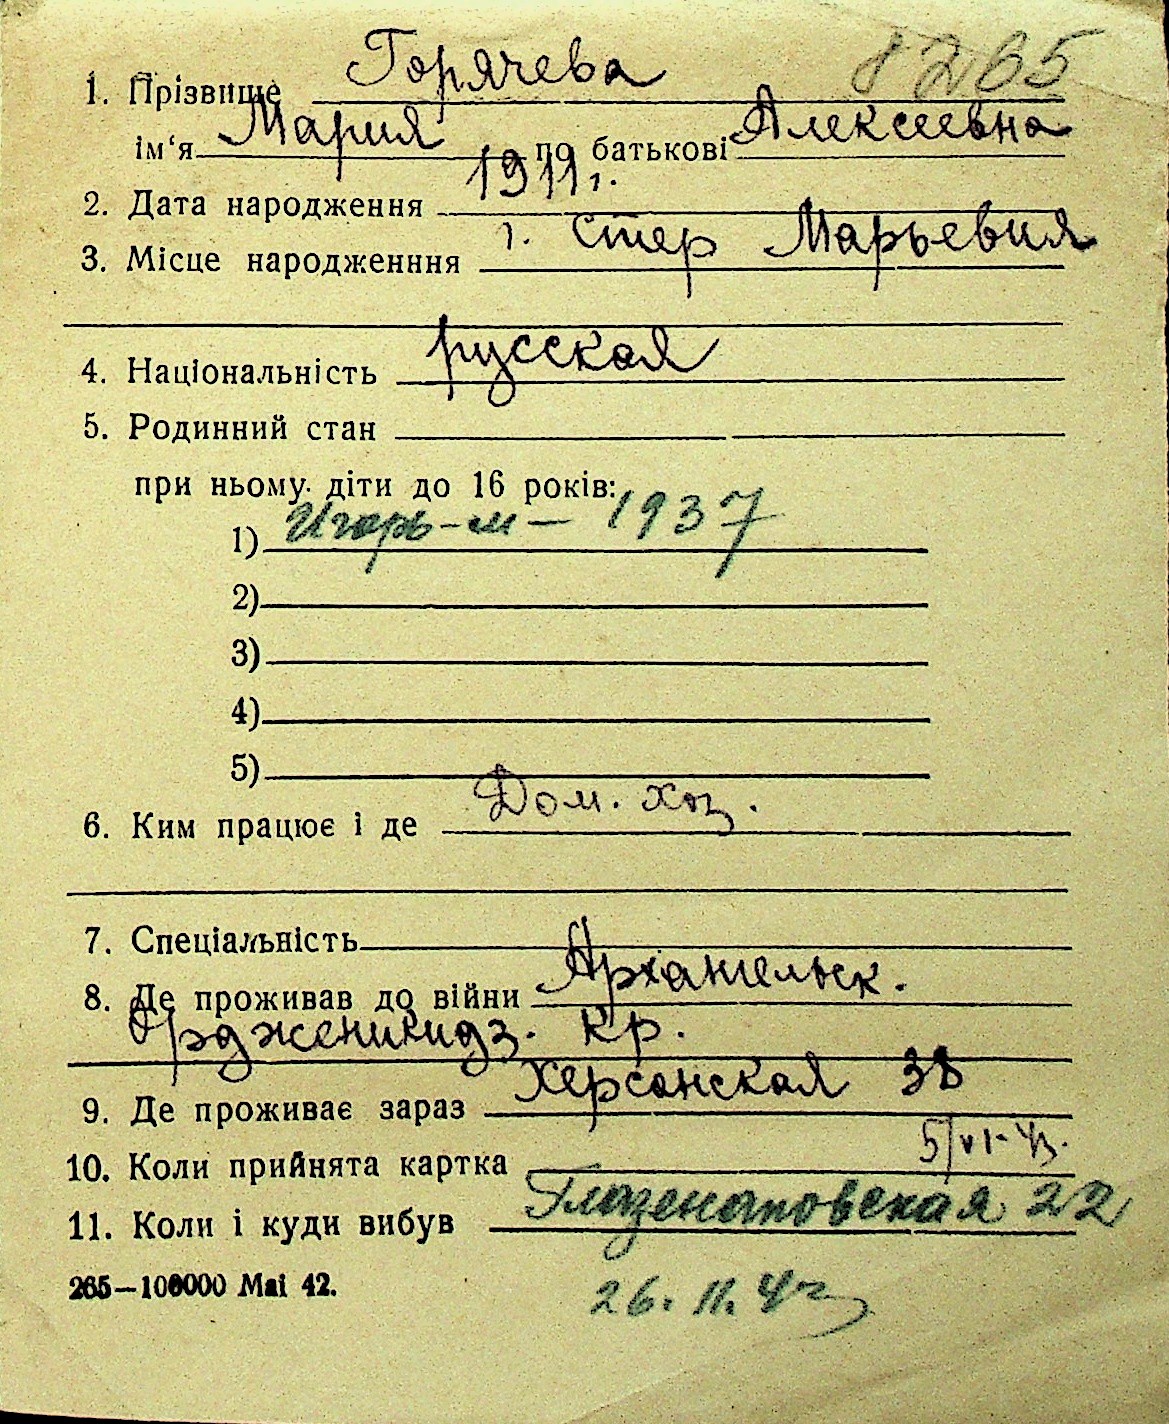 8265
1. Прізвище Горячева
ім‘я Мария по батькові Алексеевна
2. Дата народження 1911 г.
3. Місце народженння г. Стер Марьевия
4. Національність русская
5. Родинний стан
при ньому діти до 16 років:
1) Игорь – м – 1937
2)
3)
4)
5)
6. Ким працює і де Дом. хоз.
7. Спеціальність
8. Де проживав до війни Архангельск.
Орджεникидз. кр.
9. Де проживає зараз Херсонская 38
10. Коли прийнята картка 5/VI-43.
11. Коли і куди вибув Глазенаповская 22
265—100000 Mai 42.
26. 11. 43